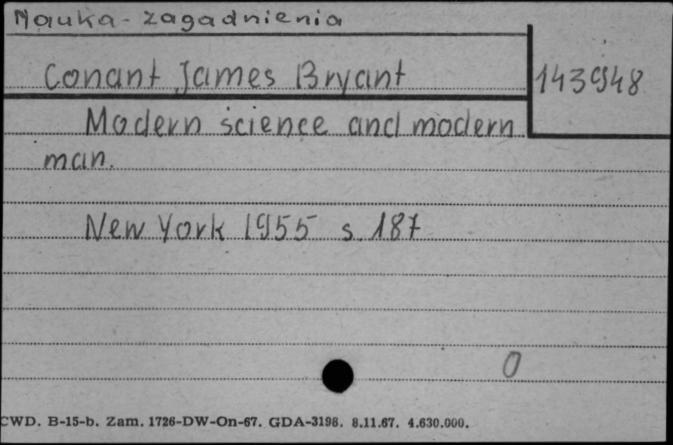 Nauka - zagadnienia
Conant James Bryant
143948
Modern science and modern
man.
New York 1955 s. 187
0
CWD. B-15-b. Zam. 1726-DW-On-67. GDA-3198. 8.11.67. 4.630.000.